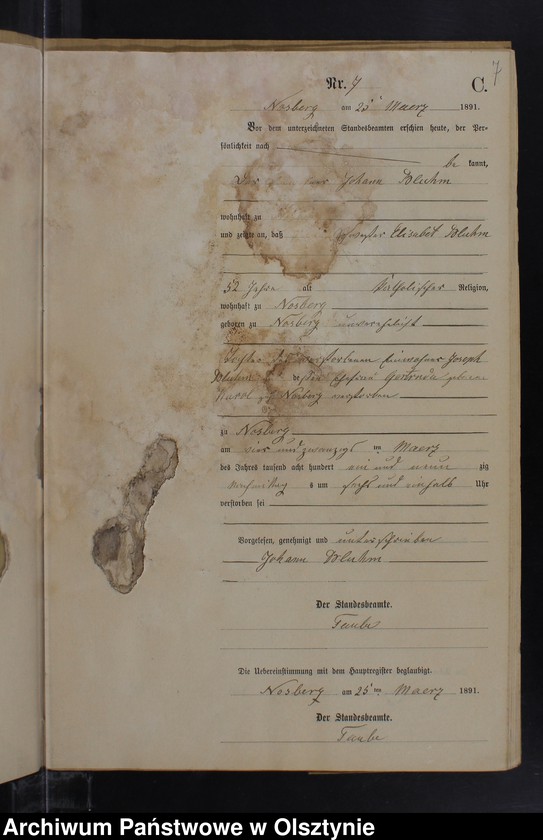 7
Nr. 7 C.
Nosberg am 25ten Maerz 1891.
Vor dem unterzeichneten Standesbeamten erschien heute, der Per-
sönlichkeit nach
be kannt,
Der Johann Bluhm
wohnhaft zu
und zeigte an, daß Schwester Elisabet Bluhm
52 Jahre alt Katholischer Religion,
wohnhaft zu Nosberg
geboren zu Nosberg unverehelicht
Tochter des verstorbenen Einwohner Joseph
Bluhm dessen Ehefrau Gertruda geborene
Nosberg verstorben
zu Nosberg
am vier und zwanzigs ten Maerz
des Jahres tausend acht hundert ein und neun zig
Nachmittag s um sechs und einhalb Uhr
verstorben sei
Vorgelesen, genehmigt und unterschrieben
Johann Bluhm
Der Standesbeamte.
Taube
Die Uebereinstimmung mit dem Hauptregister beglaubigt.
Nosberg am 25ten Maerz 1891.
Der Standesbeamte.
Taube
Archiwum Państwowe w Olsztynie